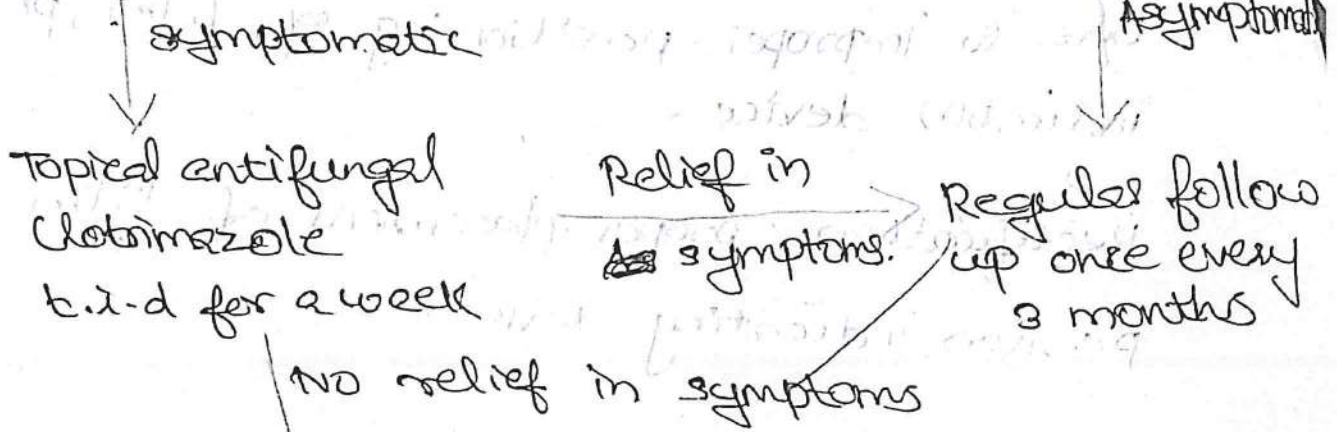 symptomatic
Asymptomati
Topical antifungal
Clotrimazole
t.i.d for a week
Relief in
symptoms.
Regular follow
up once every
3 months
NO relief in symptoms